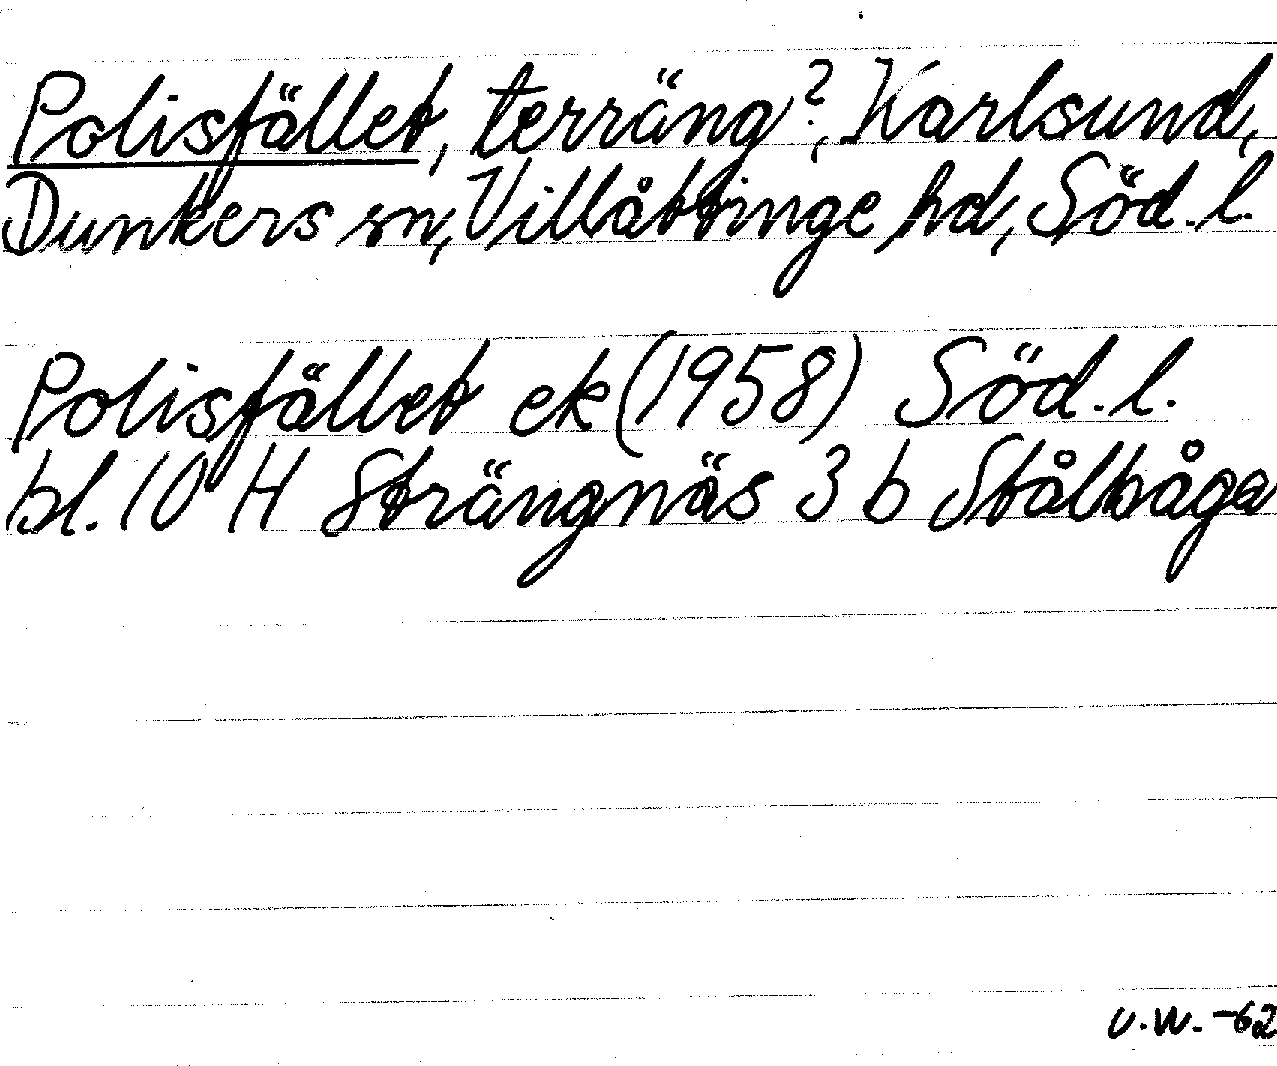 Polisfället, terräng?, Karlsund,
Dunkers sn, Villåttinge hd, Söd. l.
Polisfället ek (1958) Söd. l.
bl. 10 H Strängnäs 3 b Stålbåga
U.W. -62